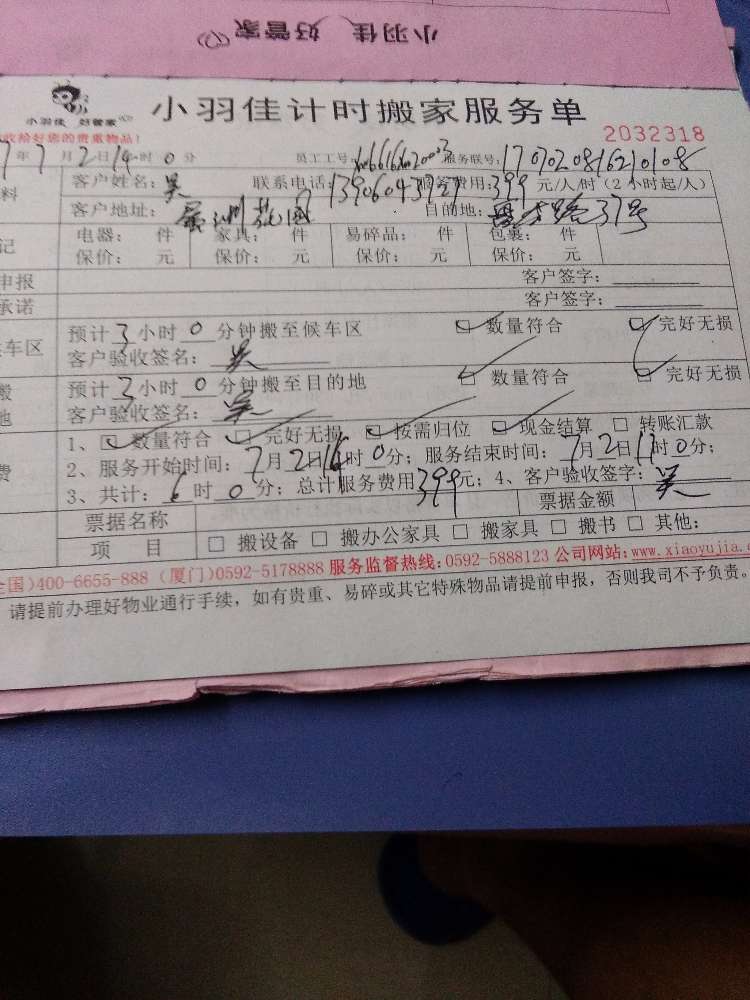 小羽佳 好管家
小羽佳 好管家
小羽佳计时搬家服务单
收给好您的贵重物品！
2032318
年7月2日14时0分 员工工号： 服务联号：1707020816210108
客户姓名：吴 联系电话： 服务费用：399元/人/时（2小时起/人）
客户地址： 花园 目的地： 路37号
电器： 件 家具： 件 易碎品： 件 包裹： 件
保价： 元 保价： 元 保价： 元 保价： 元
申报 客户签字：
承诺 客户签字：
车区 预计3小时0分钟搬至候车区 数量符合 完好无损
客户验收签名：吴
搬 预计3小时0分钟搬至目的地 数量符合 完好无损
地 客户验收签名：吴
1、数量符合 完好无损 按需归位 现金结算 转账汇款
费 2、服务开始时间：7月2日16时0分；服务结束时间：7月2日 时0分；
3、共计：6时0分；总计服务费用399元；4、客户验收签字：吴
票据名称 票据金额
项 目 搬设备 搬办公家具 搬家具 搬书 其他：
全国)400-6655-888 (厦门)0592-5178888 服务监督热线:0592-5888123 公司网站:www.xiaoyujia.c
请提前办理好物业通行手续，如有贵重、易碎或其它特殊物品请提前申报，否则我司不予负责。